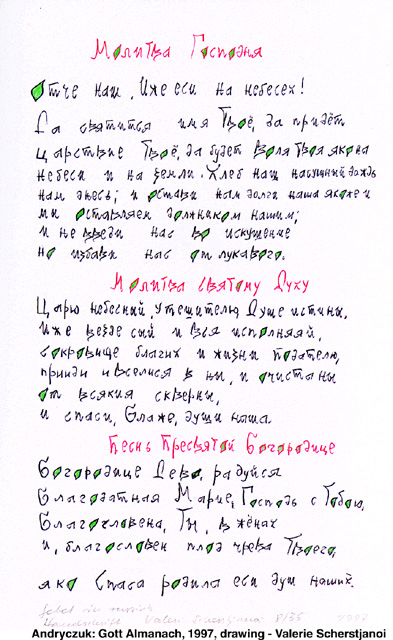 Молитва Господня
Отче наш, Иже еси на небесех!
Да святится имя Твоё, да придёт
царствие Твоё, да будет воля Твоя яко на
небеси и на земли. Хлеб наш насущный даждь
нам днесь; и остави нам долги наша якоже и
мы оставляем должником нашим;
и не введи нас во искушение
но избави нас от лукавого.
Молитва святому Духу
Царю небесный, утешителю, Душе истины,
Иже везде сый и вся исполняяй,
сокровище благих и жизни подателю,
прииди и вселися в ны, и очисти ны
от всякия скверны,
и спаси, Блаже, души наша.
Песнь Пресвятой Богородице
Богородице Дево, радуйся
Благодатная Марие, Господь с Тобою,
Благословена, Ты, в жёнах
и, благословен плод чрева Твоего,
яко Спаса родила еси душ наших.
Gebet in russisch
Handschrift Valeri Scherstjanoi 8/35 1997
Andryczuk: Gott Almanach, 1997, drawing - Valerie Scherstjanoi